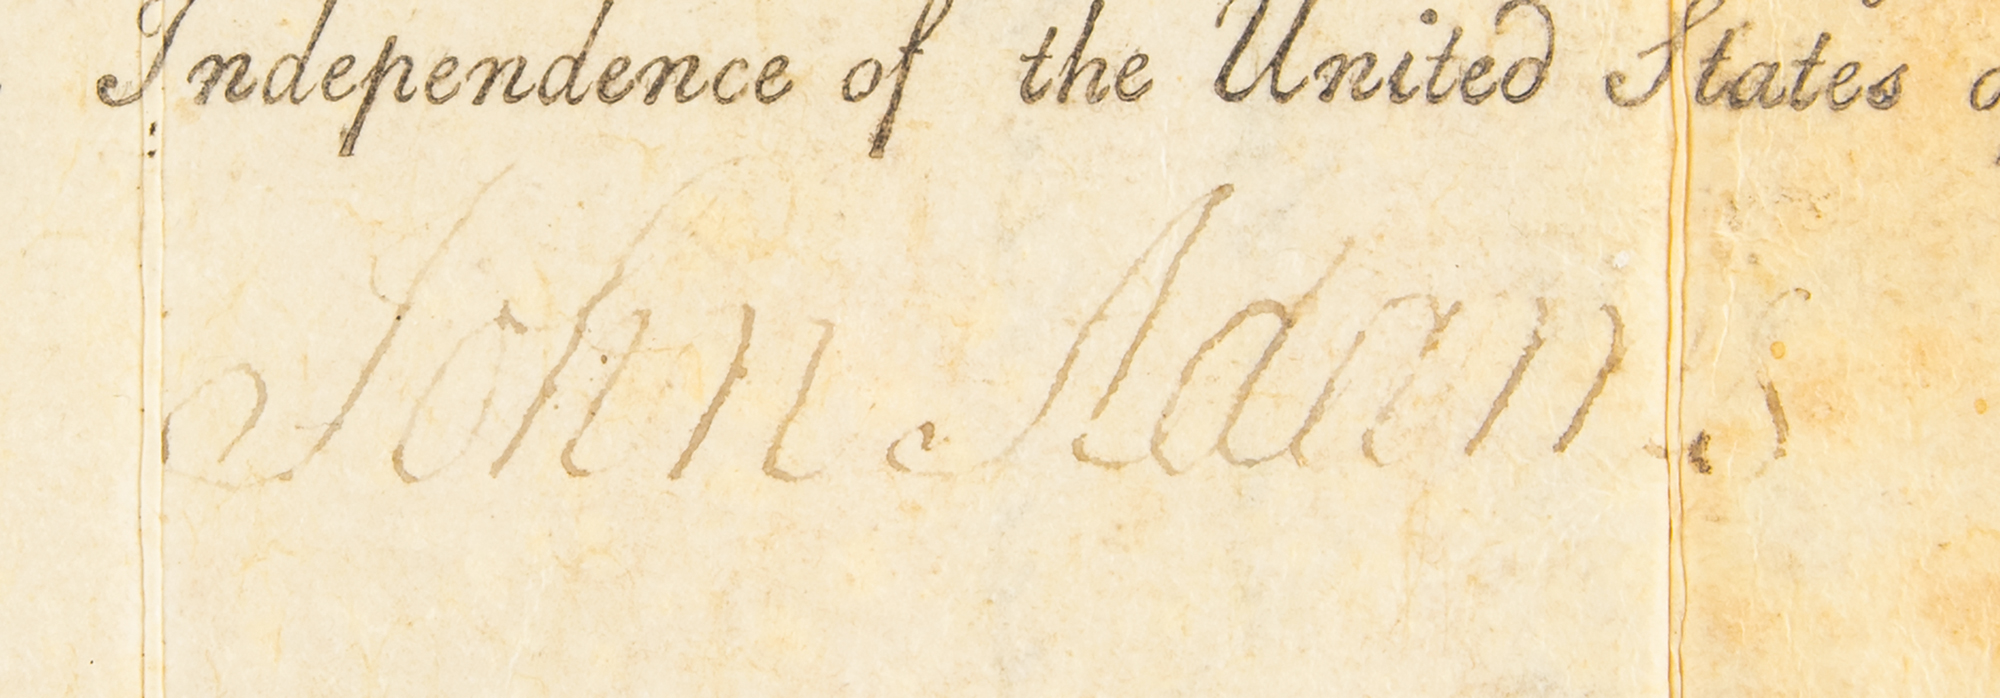 Independence of the United States
John Adams